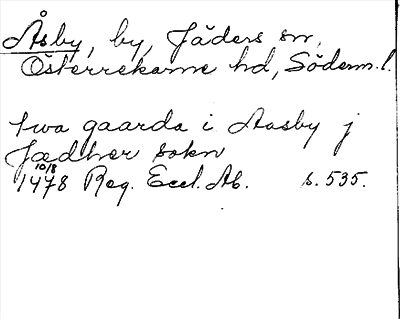 Åsby, by, Jäders sn,
Österrekarne hd, Söderm.l.
twa gaarda i Aasby j
Jædher sokn
10/8
1478 Reg. Eccl. Ab. s. 535.